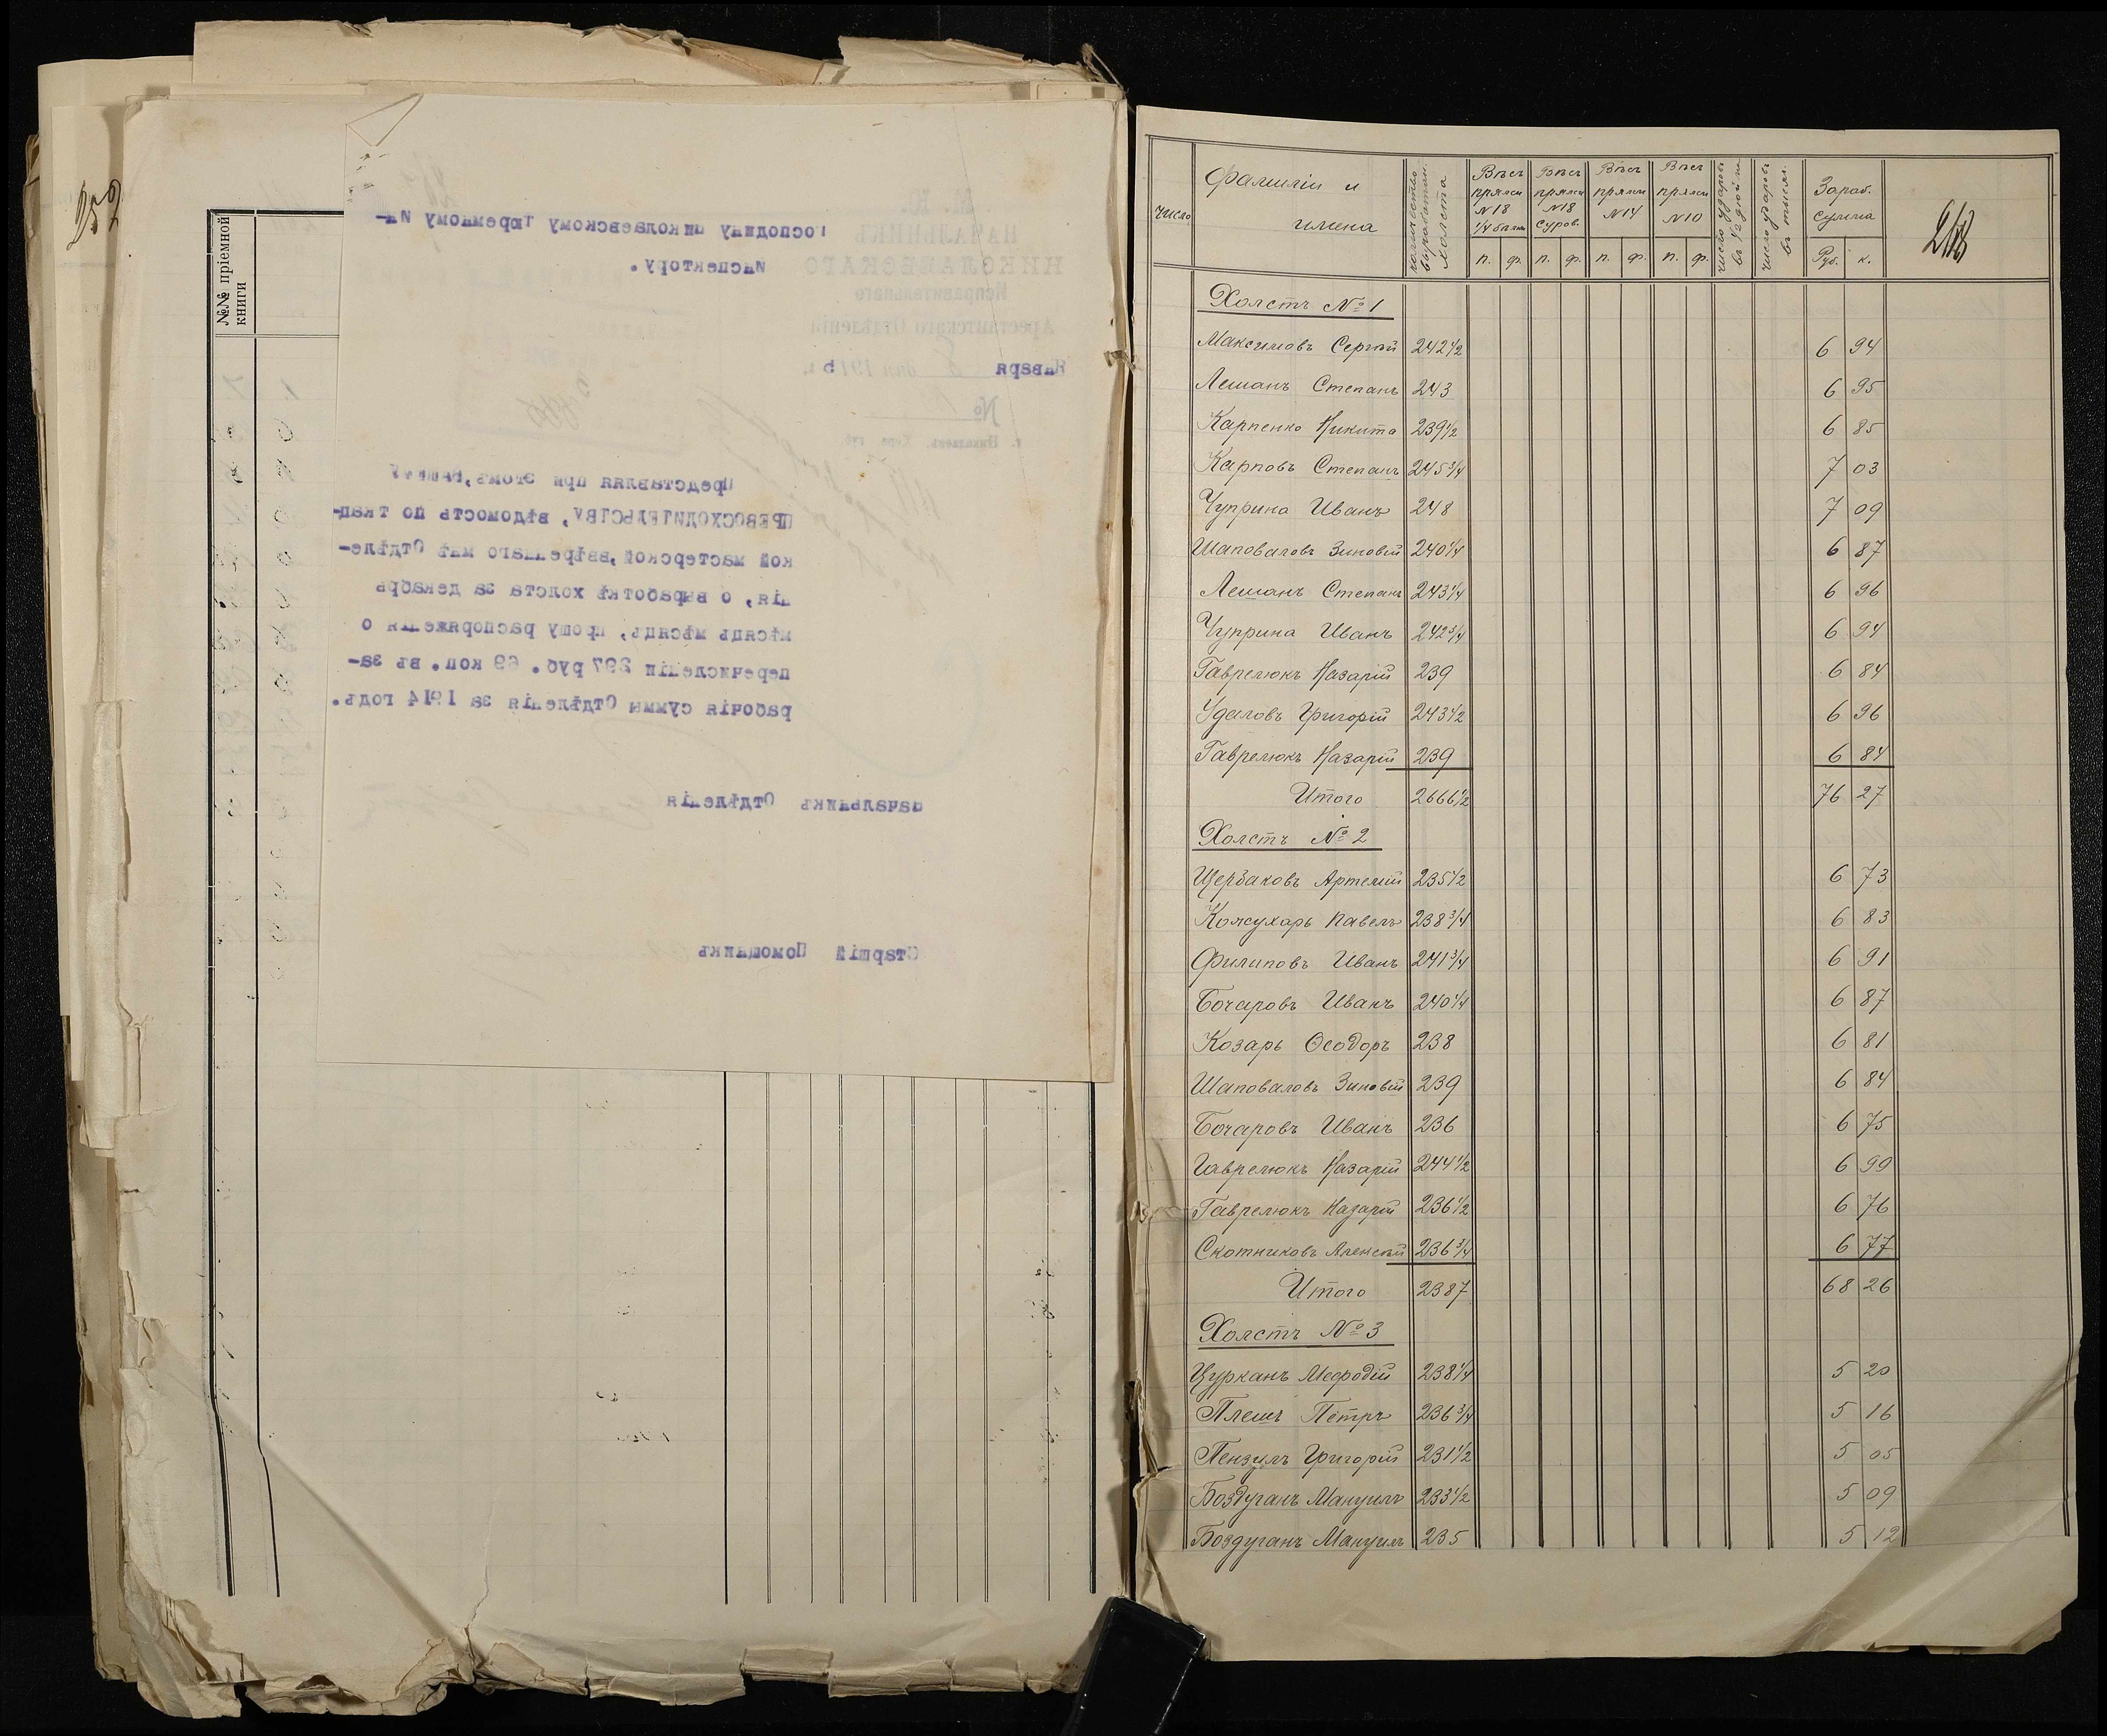 252
№№ пріемной
книги
М. Ю.
НАЧАЛЬНИКЪ
НИКОЛАЕВСКАГО
Исправительнаго
Арестантскаго Отдѣленія
Января 1915 г.
№
г. Николаевъ, Херс. губ.
Господину Николаевскому Тюремному Ин-
спектору.
Представляя при этомъ, Вашему
ПРЕВОСХОДИТЕЛЬСТВУ, вѣдомость по ткац-
кой мастерской, ввѣреннаго мнѣ Отдѣле-
нія, о выработкѣ холста за декабрь
мѣсяцъ мѣсяцъ, прошу распоряженія о
перечисленіи 397 руб. 69 коп. въ за-
рабочія суммы Отдѣленія за 1914 годъ.
Начальникъ Отдѣленія
Старшій Помощникъ
Число
Фамиліи и
имена
количество
выработан.
холста
Вѣсъ
пряжи
№18
1/4 бѣлы
п. ф.
Вѣсъ
пряжи
№18
суров.
п. ф.
Вѣсъ
пряжи
№14
п. ф.
Вѣсъ
пряжи
№10
п. ф.
число ударовъ
въ 1/2 дюйм
число ударовъ
Зараб.
сумма
Руб. к.
Холстъ №1
Максимовъ Сергѣй 242 1/2 6 94
Лешанъ Степанъ 243 6 95
Карпенко Никита 239 1/2 6 85
Карповъ Степанъ 245 3/4 7 03
Чуприна Иванъ 248 7 09
Шаповаловъ Зиновій 240 1/4 6 87
Лешанъ Степанъ 243 1/4 6 96
Чуприна Иванъ 242 3/4 6 94
Гаврелюкъ Назарій 239 6 84
Удаловъ Григорій 243 1/2 6 96
Гаврелюкъ Назарій 239 6 84
Итого 2666 1/2 76 27
Холстъ №2
Щербаковъ Артемій 235 1/2 6 73
Кожухарь Павелъ 238 3/4 6 83
Филиповъ Иванъ 241 3/4 6 91
Бочаровъ Иванъ 240 1/4 6 87
Козарь Ѳеодоръ 238 6 81
Шаповаловъ Зиновій 239 6 84
Бочаровъ Иванъ 236 6 75
Гаврелюкъ Назарій 244 1/2 6 99
Гаврелюкъ Назарій 236 1/2 6 76
Скотниковъ Алексѣй 236 3/4 6 77
Итого 2387 68 26
Холстъ №3
Цурканъ Мефодій 238 1/4 5 20
Плешъ Петръ 236 3/4 5 16
Пензулъ Григорій 231 1/2 5 05
Боздуганъ Мануилъ 233 1/2 5 09
Боздуганъ Мануилъ 235 5 12